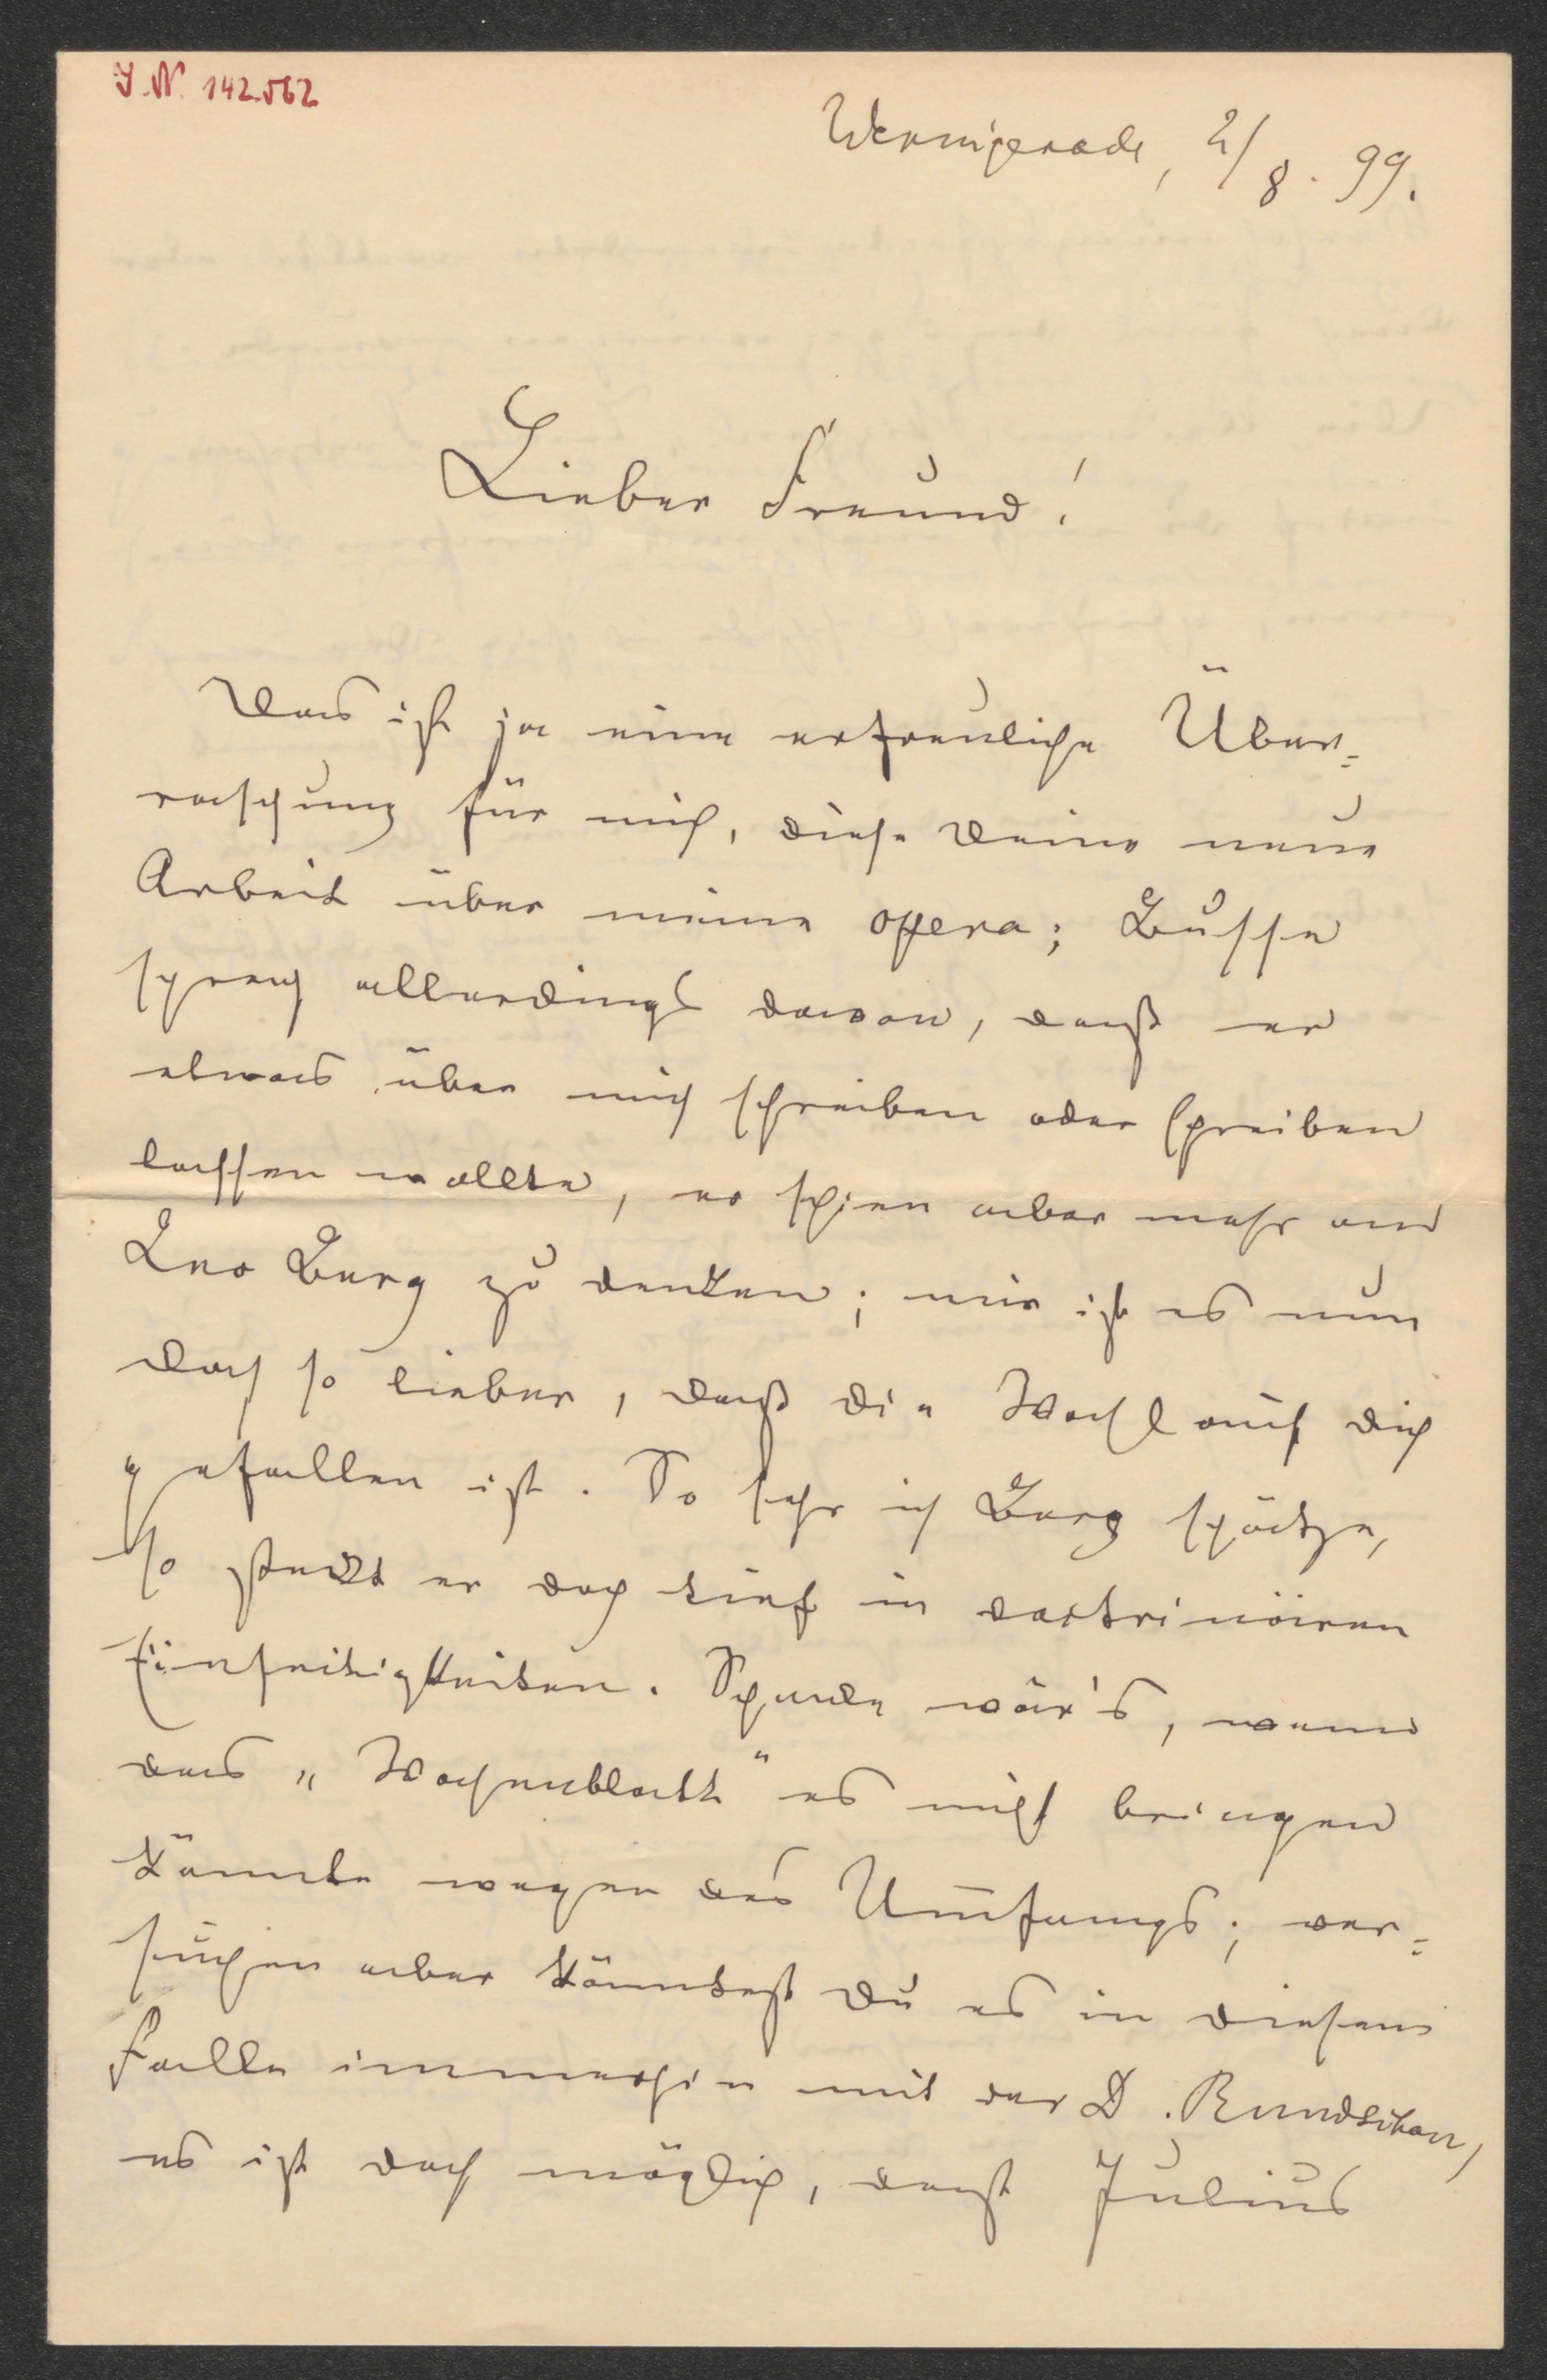 I.N. 142.562
Wernigerode, 2/8. 99.
Lieber Freund!
Das ist ja eine erfreuliche Über=
raschung für mich, diese Deine neue
Arbeit über meine opera; Busse
sprach allerdings davon, daß er
etwas über mich schreiben oder schreiben
lassen wollte, er schien aber mehr an
Leo Berg zu denken; mir ist es nun
doch so lieber, daß die Wahl auf Dich
gefallen ist. So sehr ich Berg schätze,
so steckt er doch tief in doktrinären
Einseitigkeiten. Schade wär's, wenn
das „Wochenblatt" es nicht bringen
könnte wegen des Umfangs; ver=
suchen aber könntest Du es in diesem
Falle immerhin mit der D. Rundschau,
es ist doch möglich, daß Julius